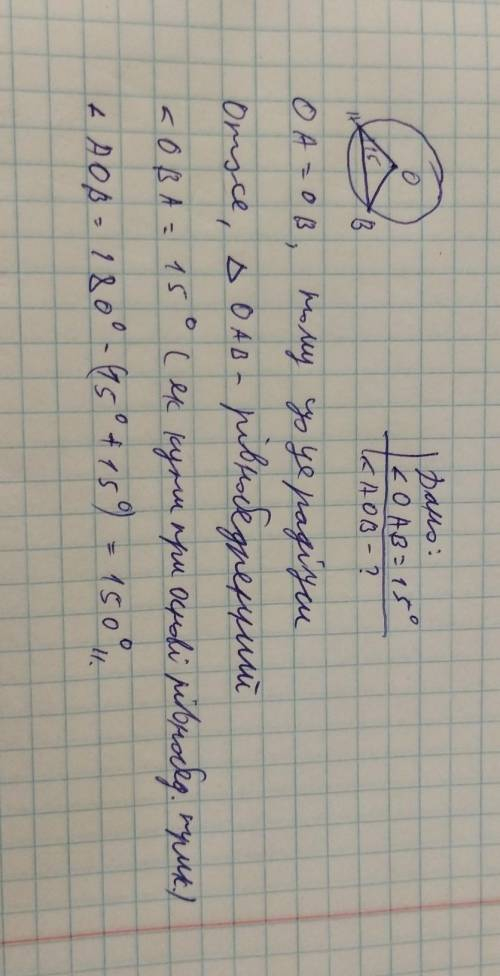 O
A 15
B
Дано:
< OAB = 15°
< AOB - ?
OA = OB, тому що це радіуси
Отже, △ OAB - рівнобедренний
< OBA = 15° (як кути при основі рівнобед. трик.)
< AOB = 180° - (15° + 15°) = 150°//.